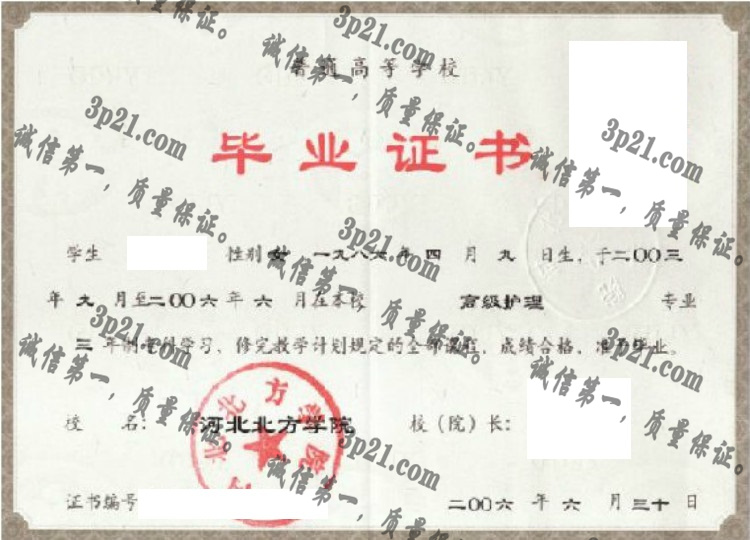 普通高等学校
毕业证书
学生 性别 女 一九八六年 四 月 九 日生，于二〇〇三
年 九 月至二〇〇六 年 六 月在本校 高级护理 专业
三 年制专科学习，修完教学计划规定的全部课程，成绩合格，准予毕业。
校 名： 河北北方学院 校（院）长：
证书编号 二〇〇六 年 六 月 三十 日
河北北方学院
3p21.com
诚信第一，质量保证。
3p21.com
诚信第一，质量保证。
3p21.com
诚信第一，质量保证。
3p21.com
诚信第一，质量保证。
3p21.com
诚信第一，质量保证。
3p21.com
诚信第一，质量保证。
3p21.com
诚信第一，质量保证。
3p21.com
诚信第一，质量保证。